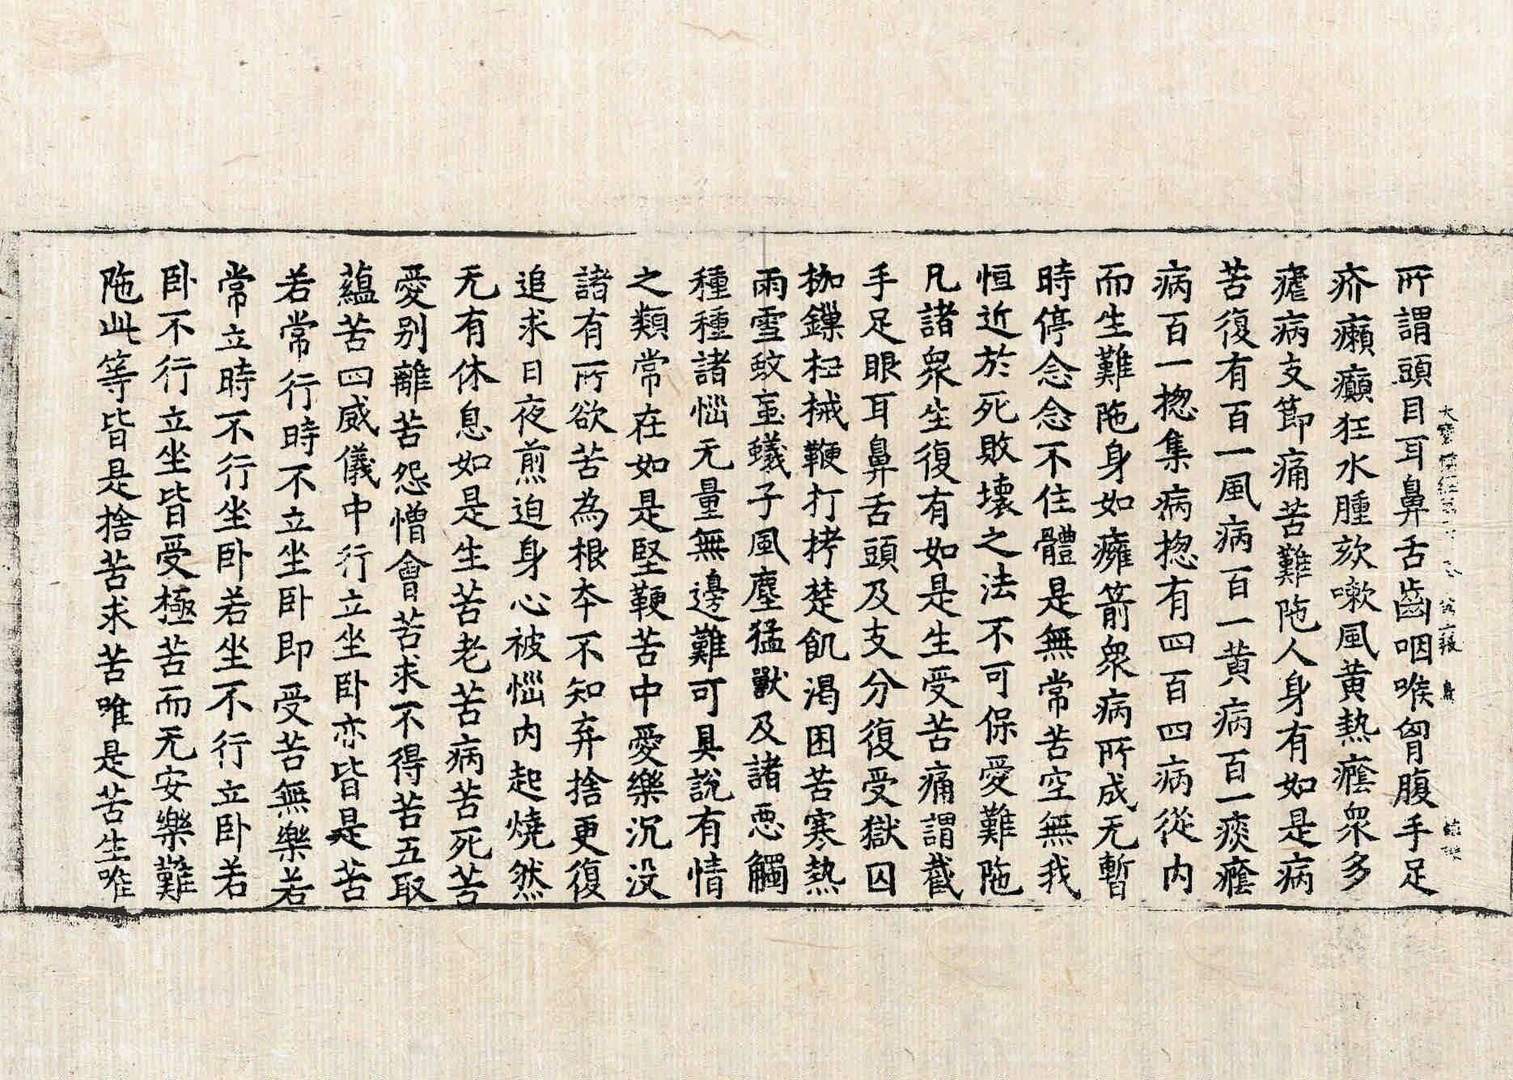 大寶積經
所謂頭目耳鼻舌齒咽喉胷腹手足
疥癩癲狂水腫欬嗽風黄熱癊衆多
瘧病支節痛苦難陁人身有如是病
苦復有百一風病百一黄病百一痰癊
病百一揔集病揔有四百四病從内
而生難陁身如癰箭衆病所成无暫
時停念念不住體是無常苦空無我
恒近於死敗壞之法不可保愛難陁
凡諸衆生復有如是生受苦痛謂截
手足眼耳鼻舌頭及支分復受獄囚
枷鏁杻械鞭打拷楚飢渇困苦寒熱
雨雪蚊䖟蟻子風塵猛獸及諸惡觸
種種諸惱无量無邊難可具說有情
之類常在如是堅鞕苦中愛樂沉没
諸有所欲苦為根夲不知弃捨更復
追求日夜煎迫身心被惱内起燒然
无有休息如是生苦老苦病苦死苦
愛别離苦怨憎會苦求不得苦五取
蘊苦四威儀中行立坐卧亦皆是苦
若常行時不立坐卧即受苦無樂若
常立時不行坐卧若坐不行立卧若
卧不行立坐皆受極苦而无安樂難
陁此等皆是捨苦求苦唯是苦生唯